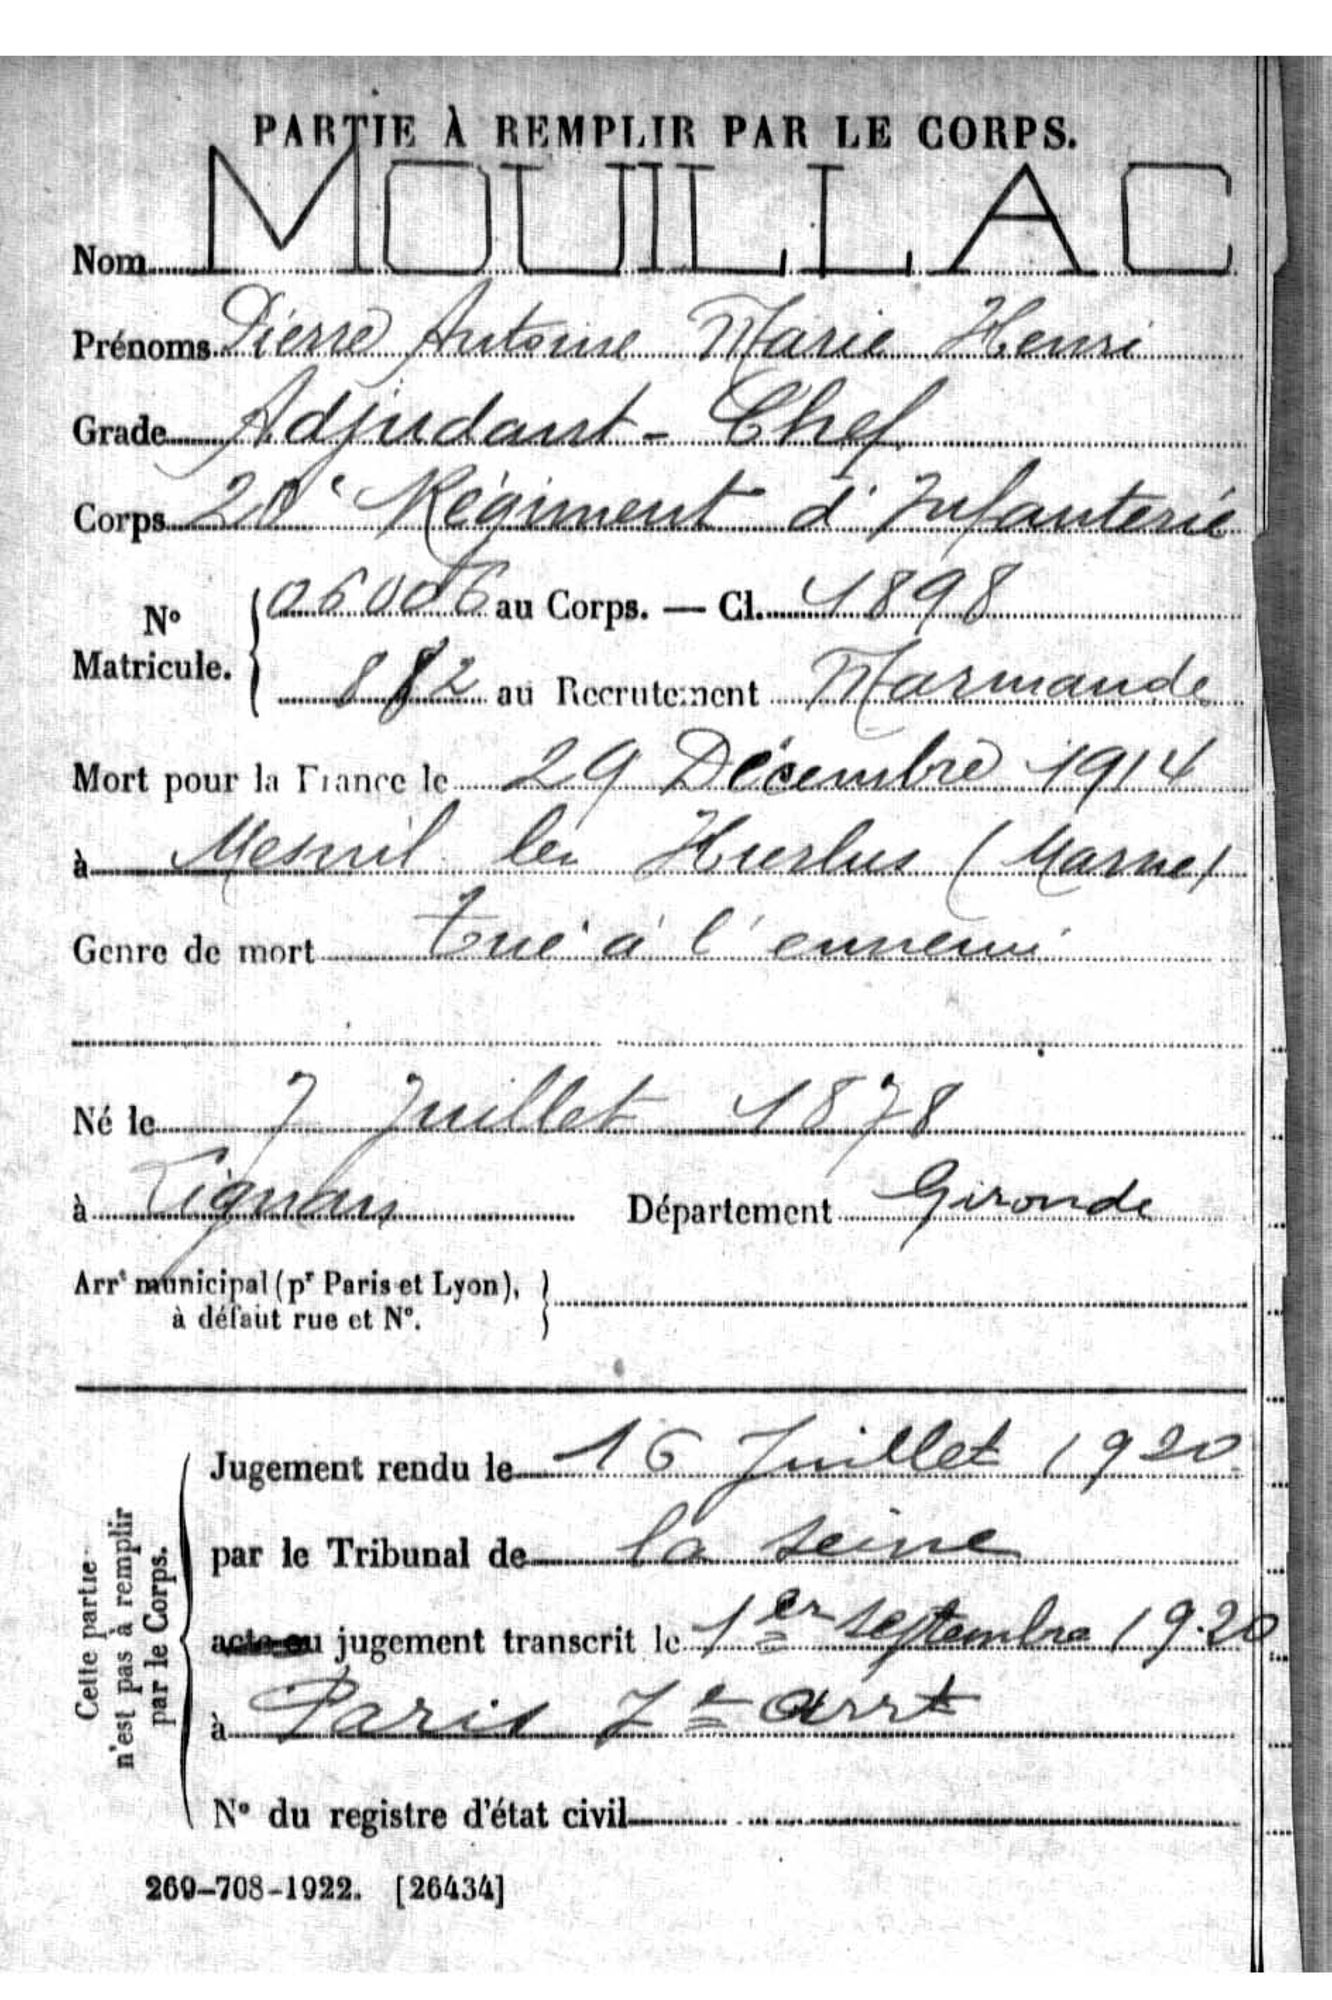 PARTIE À REMPLIR PAR LE CORPS.
Nom MOUILLAC
Prénoms Pierre Antoine Marie Henri
Grade Adjudant-Chef
Corps 20e Régiment d'Infanterie
N° Matricule. 06006 au Corps. — Cl. 1898
882 au Recrutement Marmande
Mort pour la France le 29 Décembre 1914
à Mesnil les Hurlus (Marne)
Genre de mort tué à l'ennemi
Né le 7 Juillet 1878
à Lignan Département Gironde
Arrt municipal (pr Paris et Lyon),
à défaut rue et N°.
Cette partie
n'est pas à remplir
par le Corps.
Jugement rendu le 16 Juillet 1920
par le Tribunal de la Seine
acte ou jugement transcrit le 1er septembre 1920
à Paris 7e arrt
N° du registre d'état civil
269-708-1922. [26434]